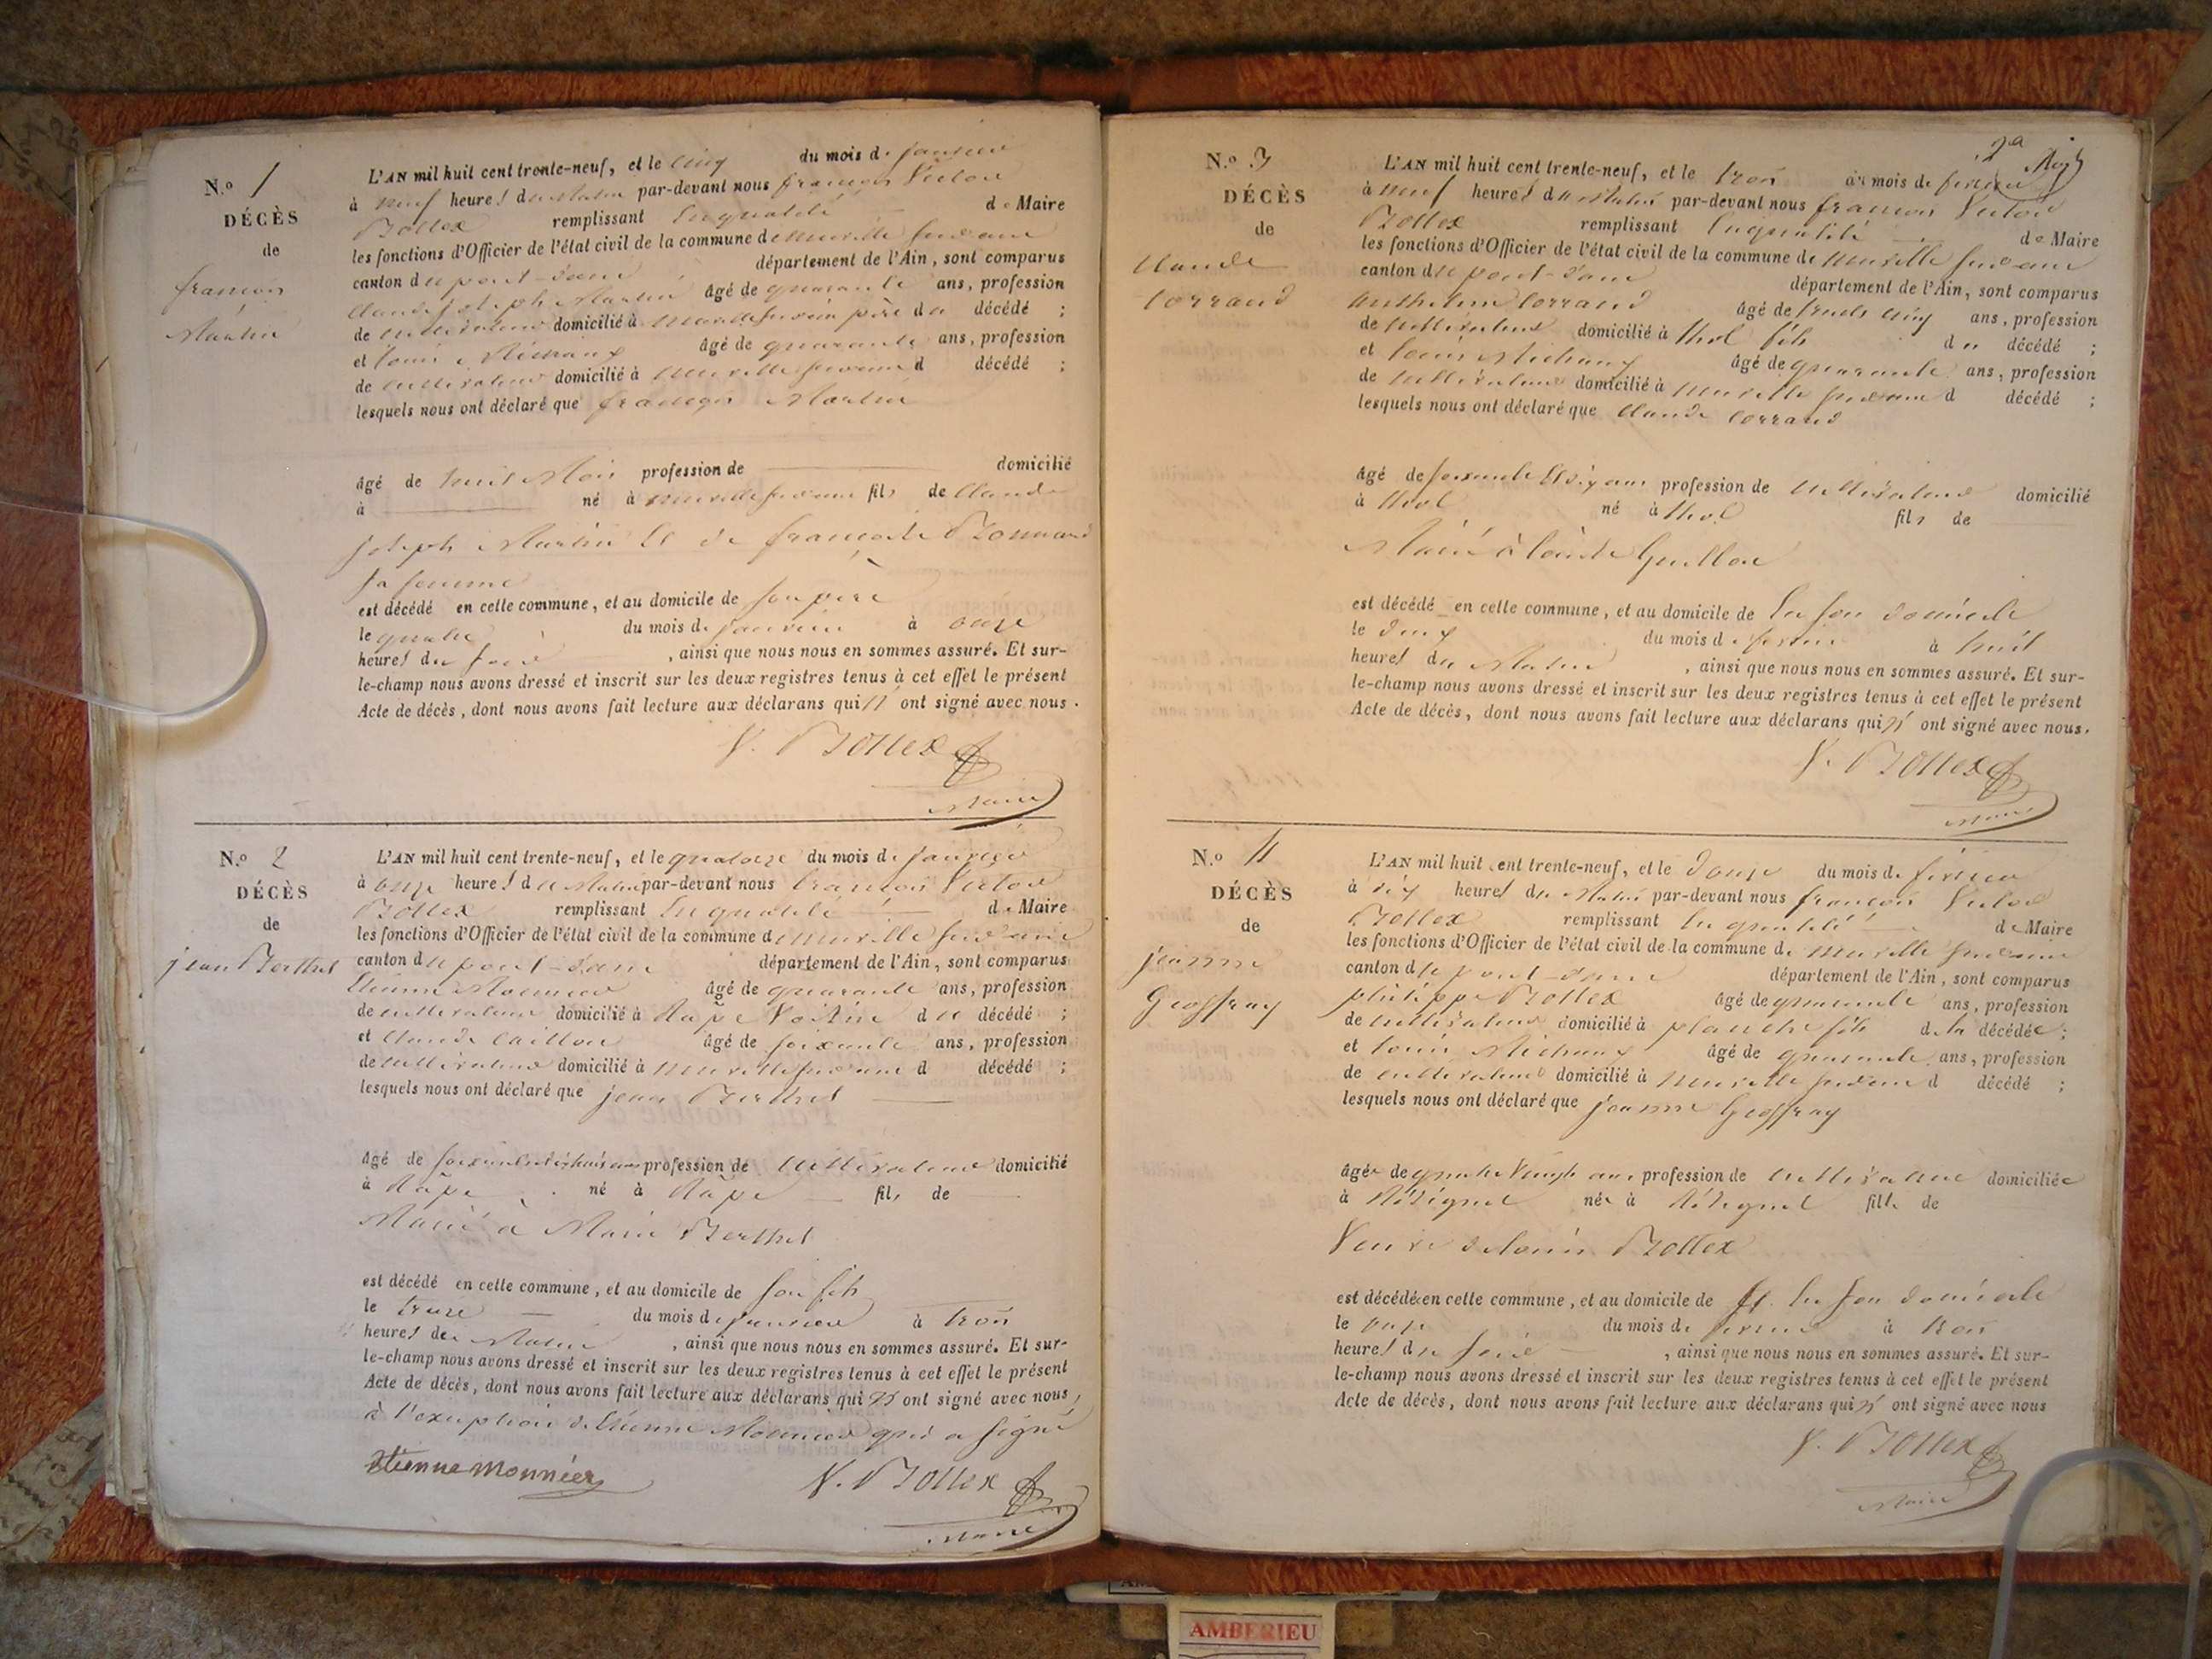 N.o 1
DÉCÈS
de
françois
Martin
L'AN mil huit cent trente-neuf, et le cinq du mois de janvier
à neuf heures du Matin par-devant nous françois Victor
Bottex remplissant en qualité de Maire
les fonctions d'Officier de l'état civil de la commune de neuville sur ain
canton du pont-dain département de l'Ain, sont comparus
Claude joseph Martin âgé de quarante ans, profession
de cultivateur domicilié à neuville sur ain père du décédé ;
et louis Michaux âgé de quarante ans, profession
de cultivateur domicilié à neuville sur ain d décédé ;
lesquels nous ont déclaré que françois Martin
âgé de huit Mois profession de domicilié
à né à neuville sur ain fils de Claude
joseph Martin et de françoise Bonnard
sa femme
est décédé en cette commune, et au domicile de son père
le quatre du mois de janvier à onze
heures du soir , ainsi que nous nous en sommes assuré. Et sur-
le-champ nous avons dressé et inscrit sur les deux registres tenus à cet effet le présent
Acte de décès, dont nous avons fait lecture aux déclarans qui n' ont signé avec nous.
V. Bottex
Maire
N.o 2
DÉCÈS
de
jean Berthet
L'AN mil huit cent trente-neuf, et le quatorze du mois de janvier
à onze heures du Matin par-devant nous françois Victor
Bottex remplissant en qualité de Maire
les fonctions d'Officier de l'état civil de la commune de neuville sur ain
canton du pont-dain département de l'Ain, sont comparus
Etienne Monnier âgé de quarante ans, profession
de cultivateur domicilié à Rape du décédé ;
et Claude Caillon âgé de soixante ans, profession
de cultivateur domicilié à neuville sur ain d décédé ;
lesquels nous ont déclaré que jean Berthet
âgé de soixante dix huit ans profession de cultivateur domicilié
à Rape né à Rape fils de
Marié à Marie Berthet
est décédé en cette commune, et au domicile de son fils
le treize du mois de janvier à trois
heures du Matin , ainsi que nous nous en sommes assuré. Et sur-
le-champ nous avons dressé et inscrit sur les deux registres tenus à cet effet le présent
Acte de décès, dont nous avons fait lecture aux déclarans qui n' ont signé avec nous,
à l'exception de Etienne Monnier qui a signé
Etienne monnier V. Bottex
Maire
2a
N.o 3
DÉCÈS
de
Claude
Corrand
L'AN mil huit cent trente-neuf, et le trois du mois de février
à neuf heures du Matin par-devant nous françois Victor
Bottex remplissant en qualité de Maire
les fonctions d'Officier de l'état civil de la commune de neuville sur ain
canton du pont-dain département de l'Ain, sont comparus
anthelme Corrand âgé de trente cinq ans, profession
de cultivateur domicilié à thol fils du décédé ;
et louis Michaux âgé de quarante ans, profession
de cultivateur domicilié à neuville sur ain d décédé ;
lesquels nous ont déclaré que Claude Corrand
âgé de soixante et dix ans profession de cultivateur domicilié
à thol né à thol fils de
Marié à Guillon
est décédé en cette commune, et au domicile de En son domicile
le deux du mois de février à huit
heures du Matin , ainsi que nous nous en sommes assuré. Et sur-
le-champ nous avons dressé et inscrit sur les deux registres tenus à cet effet le présent
Acte de décès, dont nous avons fait lecture aux déclarans qui n' ont signé avec nous.
V. Bottex
Maire
N.o 4
DÉCÈS
de
jeanne
Geoffray
L'AN mil huit cent trente-neuf, et le douze du mois de février
à dix heures du Matin par-devant nous françois Victor
Bottex remplissant en qualité de Maire
les fonctions d'Officier de l'état civil de la commune de neuville sur ain
canton du pont-dain département de l'Ain, sont comparus
philippe Bottex âgé de quarante ans, profession
de cultivateur domicilié à planche fils de la décédée ;
et louis Michaux âgé de quarante ans, profession
de cultivateur domicilié à neuville sur ain d décédé ;
lesquels nous ont déclaré que jeanne Geoffray
âgée de quatre vingts ans profession de domiciliée
à née à fille de
Veuve de louis Bottex
est décédée en cette commune, et au domicile de En son domicile
le onze du mois de février à trois
heures du soir , ainsi que nous nous en sommes assuré. Et sur-
le-champ nous avons dressé et inscrit sur les deux registres tenus à cet effet le présent
Acte de décès, dont nous avons fait lecture aux déclarans qui n' ont signé avec nous
V. Bottex
Maire
AMBERIEU